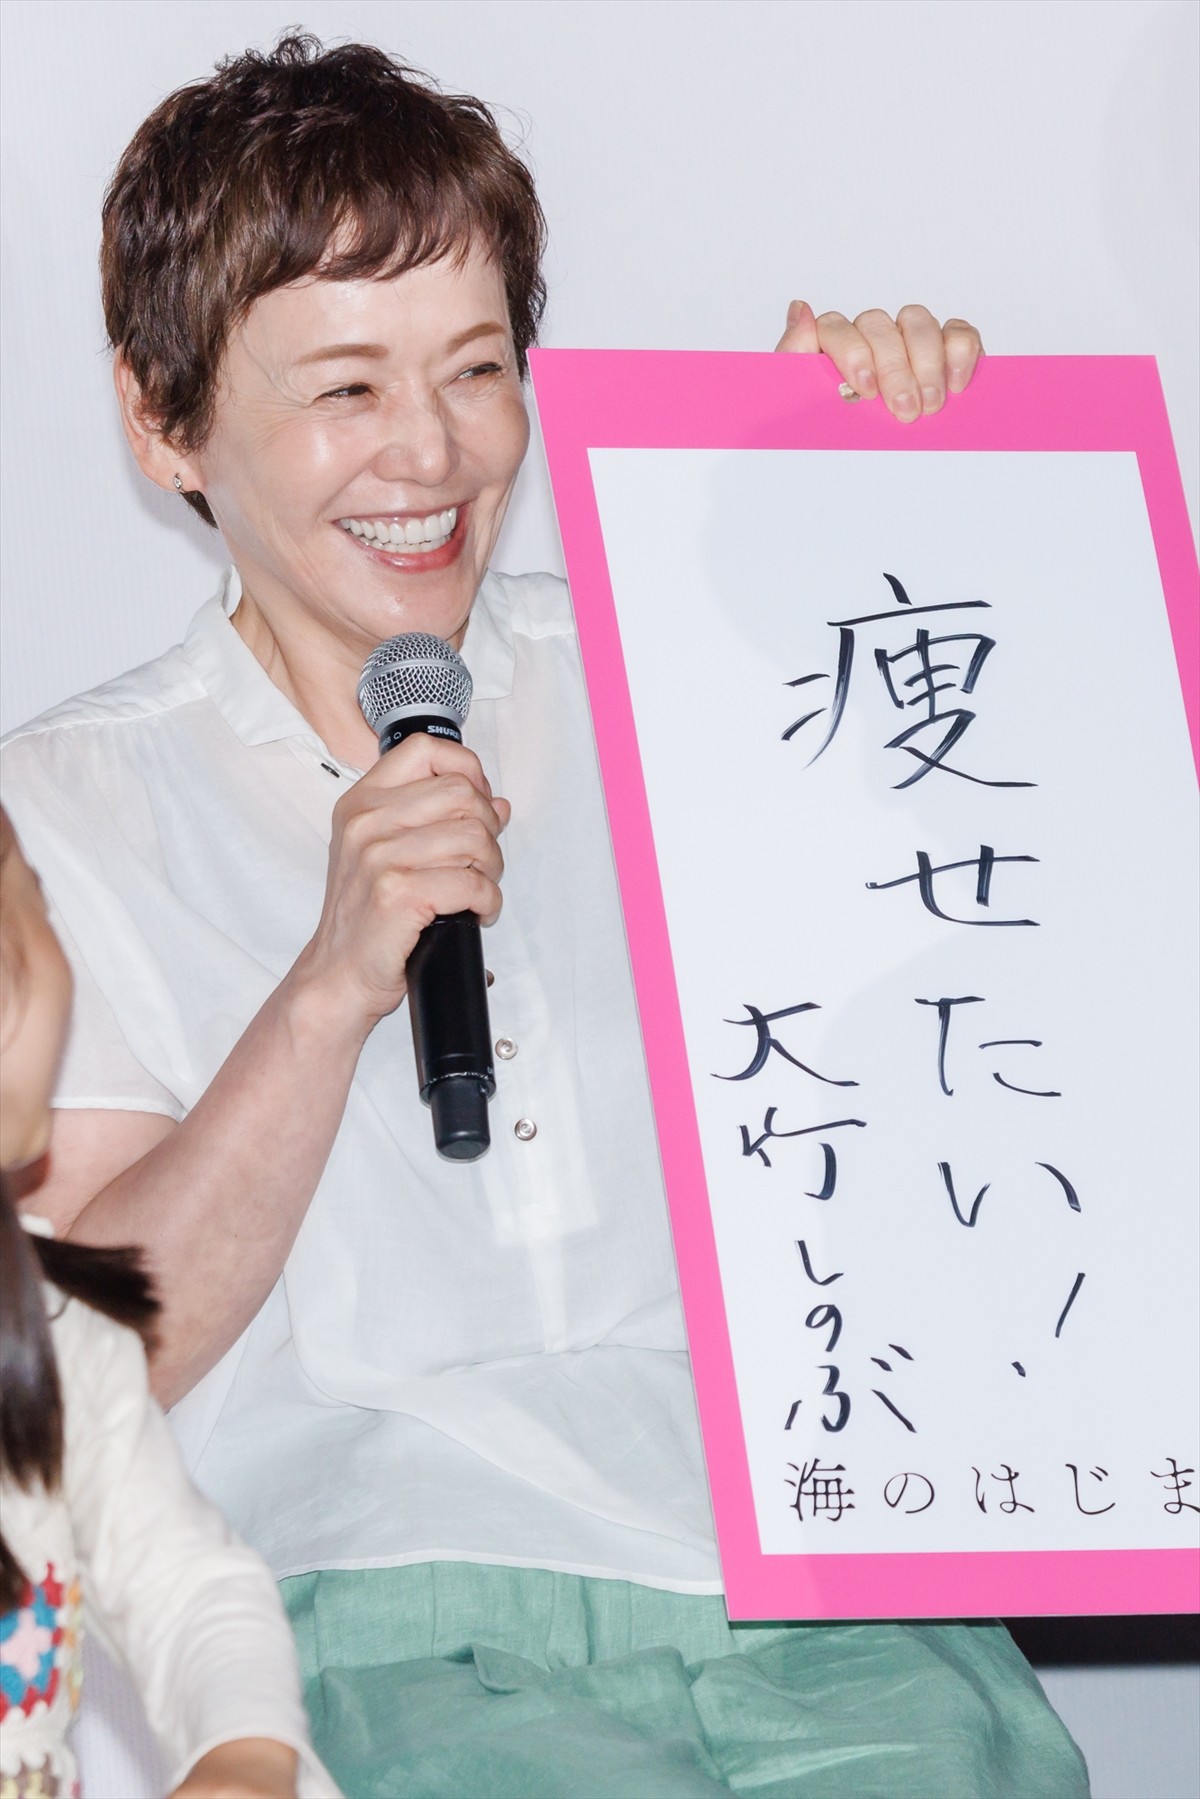 痩せたい!
大竹しのぶ
海のはじま
SHURE